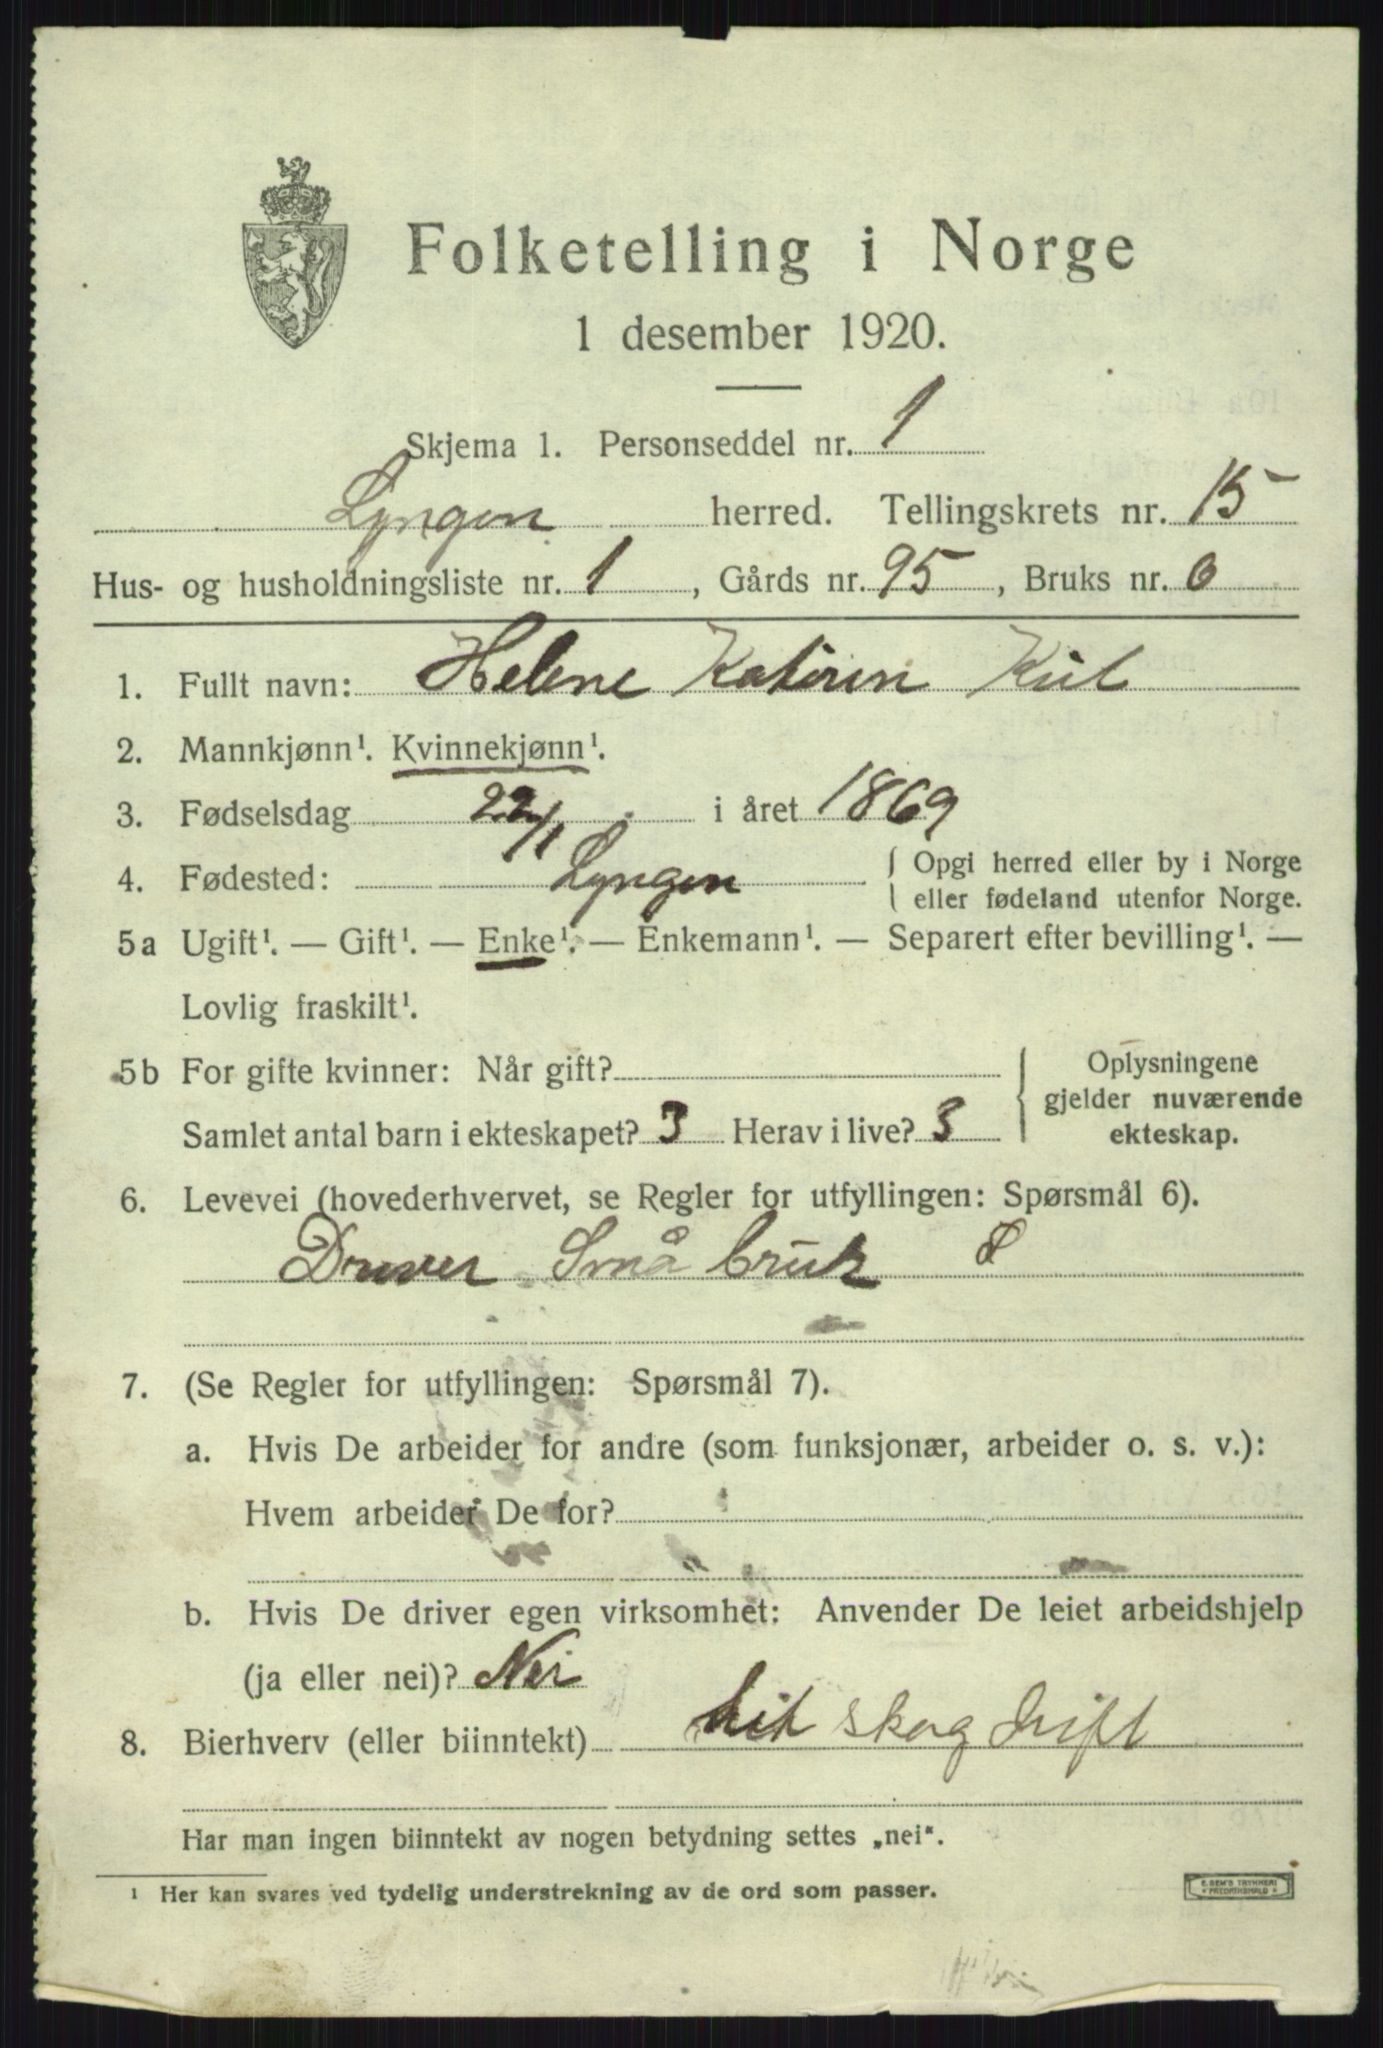 Folketelling i Norge
1 desember 1920.
Skjema 1. Personseddel nr. 1
Lyngen herred. Tellingskrets nr. 15
Hus- og husholdningsliste nr. 1, Gårds nr. 95, Bruks nr. 6
1. Fullt navn: Helene Katrin Kiil
2. Mannkjønn¹. Kvinnekjønn¹.
3. Fødselsdag 22/1 i året 1869
4. Fødested: Lyngen { Opgi herred eller by i Norge
eller fødeland utenfor Norge.
5a Ugift¹. — Gift¹. — Enke¹. — Enkemann¹. — Separert efter bevilling¹. —
Lovlig fraskilt¹.
5b For gifte kvinner: Når gift? { Oplysningene
gjelder nuværende
Samlet antal barn i ekteskapet? 3 Herav i live? 3 ekteskap.
6. Levevei (hovederhvervet, se Regler for utfyllingen: Spørsmål 6).
Driver Små bruk
7. (Se Regler for utfyllingen: Spørsmål 7).
a. Hvis De arbeider for andre (som funksjonær, arbeider o. s. v.):
Hvem arbeider De for?
"
b. Hvis De driver egen virksomhet: Anvender De leiet arbeidshjelp
(ja eller nei)? Nei
8. Bierhverv (eller biinntekt) litt skog drift
Har man ingen biinntekt av nogen betydning settes „nei“.
¹ Her kan svares ved tydelig understrekning av de ord som passer.
E. SEM'S TRYKKERI
FREDRIKSHALD